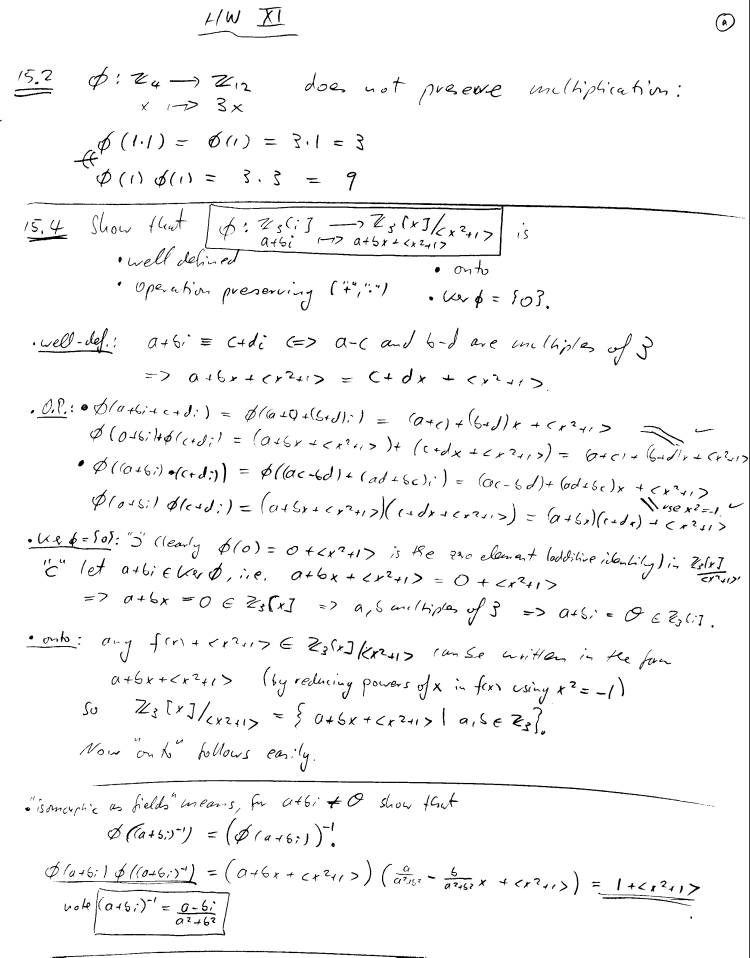 HW XI
a
15.2 ϕ : ℤ₄ → ℤ₁₂ does not preserve multiplication :
x ↦ 3x
ϕ(1·1) = ϕ(1) = 3·1 = 3
∦
ϕ(1) ϕ(1) = 3·3 = 9
15.4 Show that ϕ : ℤ₃[i] → ℤ₃[x]/<x²+1> is
a+bi ↦ a+bx+<x²+1>
• well defined • onto
• operation preserving ("+", "·") • ker ϕ = {0}.
• well-def.: a+bi ≡ c+di <=> a-c and b-d are multiples of 3
=> a+bx + <x²+1> = c+dx + <x²+1>.
• O.P.: • ϕ(a+bi+c+di) = ϕ((a+c)+(b+d)i) = (a+c)+(b+d)x + <x²+1> ✓
ϕ(a+bi)+ϕ(c+di) = (a+bx+<x²+1>)+(c+dx+<x²+1>) = (a+c)+(b+d)x+<x²+1>
• ϕ((a+bi)•(c+di)) = ϕ((ac-bd)+(ad+bc)i) = (ac-bd)+(ad+bc)x + <x²+1>
|| use x²=-1. ✓
ϕ(a+bi) ϕ(c+di) = (a+bx+<x²+1>)(c+dx+<x²+1>) = (a+bx)(c+dx)+<x²+1>
• ker ϕ = {0}: "⊃" Clearly ϕ(0) = 0+<x²+1> is the zero element (additive identity) in ℤ₃[x]/<x²+1>.
"⊂" let a+bi ∈ ker ϕ, i.e. a+bx+<x²+1> = 0+<x²+1>
=> a+bx = 0 ∈ ℤ₃[x] => a,b multiples of 3 => a+bi = 0 ∈ ℤ₃[i].
• onto: any f(x)+<x²+1> ∈ ℤ₃[x]/<x²+1> can be written in the form
a+bx+<x²+1> (by reducing powers of x in f(x) using x²=-1)
So ℤ₃[x]/<x²+1> = { a+bx+<x²+1> | a,b ∈ ℤ₃}.
Now "onto" follows easily.
• "isomorphic as fields" means, for a+bi ≠ 0 show that
ϕ((a+bi)⁻¹) = (ϕ(a+bi))⁻¹.
ϕ(a+bi) ϕ((a+bi)⁻¹) = (a+bx+<x²+1>)(a/(a²+b²) - b/(a²+b²) x + <x²+1>) = 1+<x²+1>.
note (a+bi)⁻¹ = (a-bi)/(a²+b²)